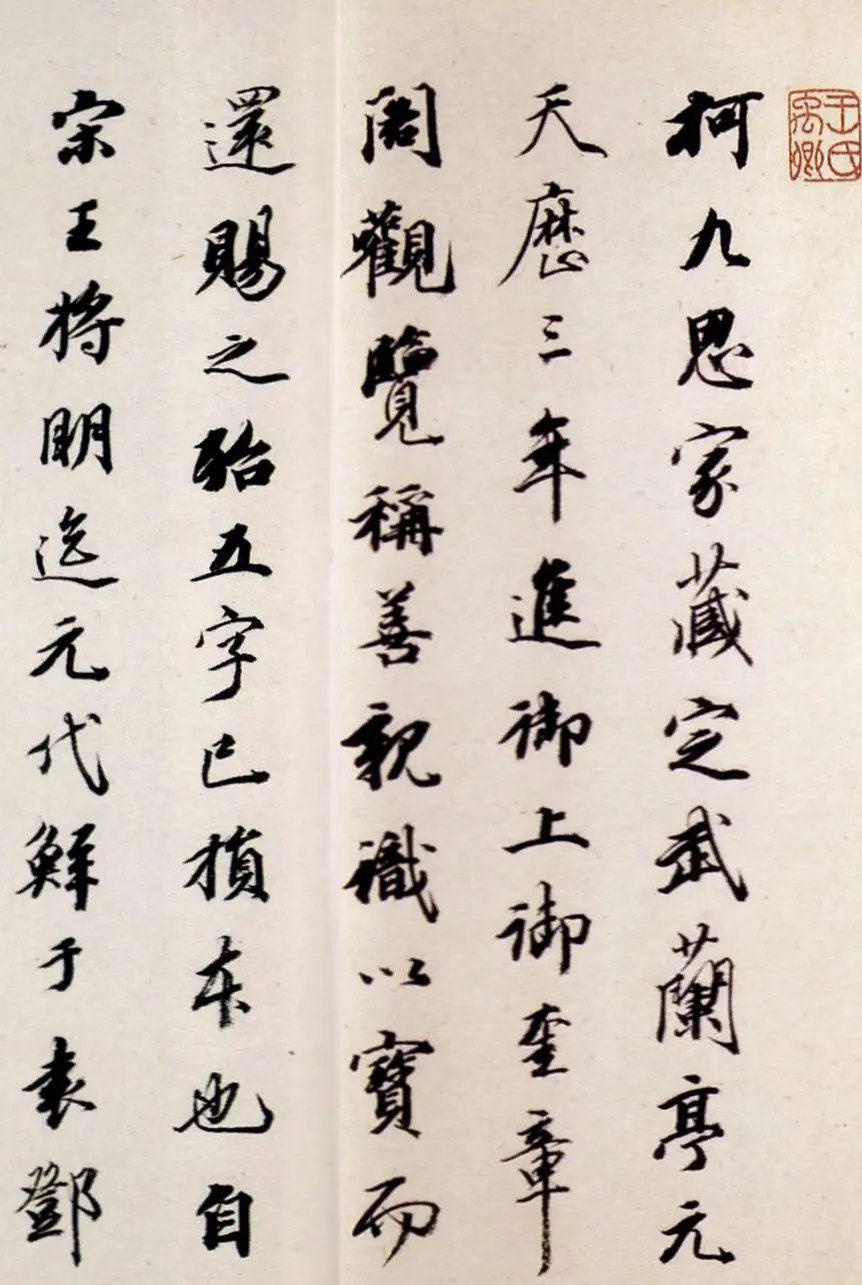 柯九思家藏定武蘭亭元
天歷三年進御上御奎章
閣觀覽稱善親識以寶而
還賜之殆五字已損本也自
宋王將明迄元代鮮于袁鄧
王氏禹卿